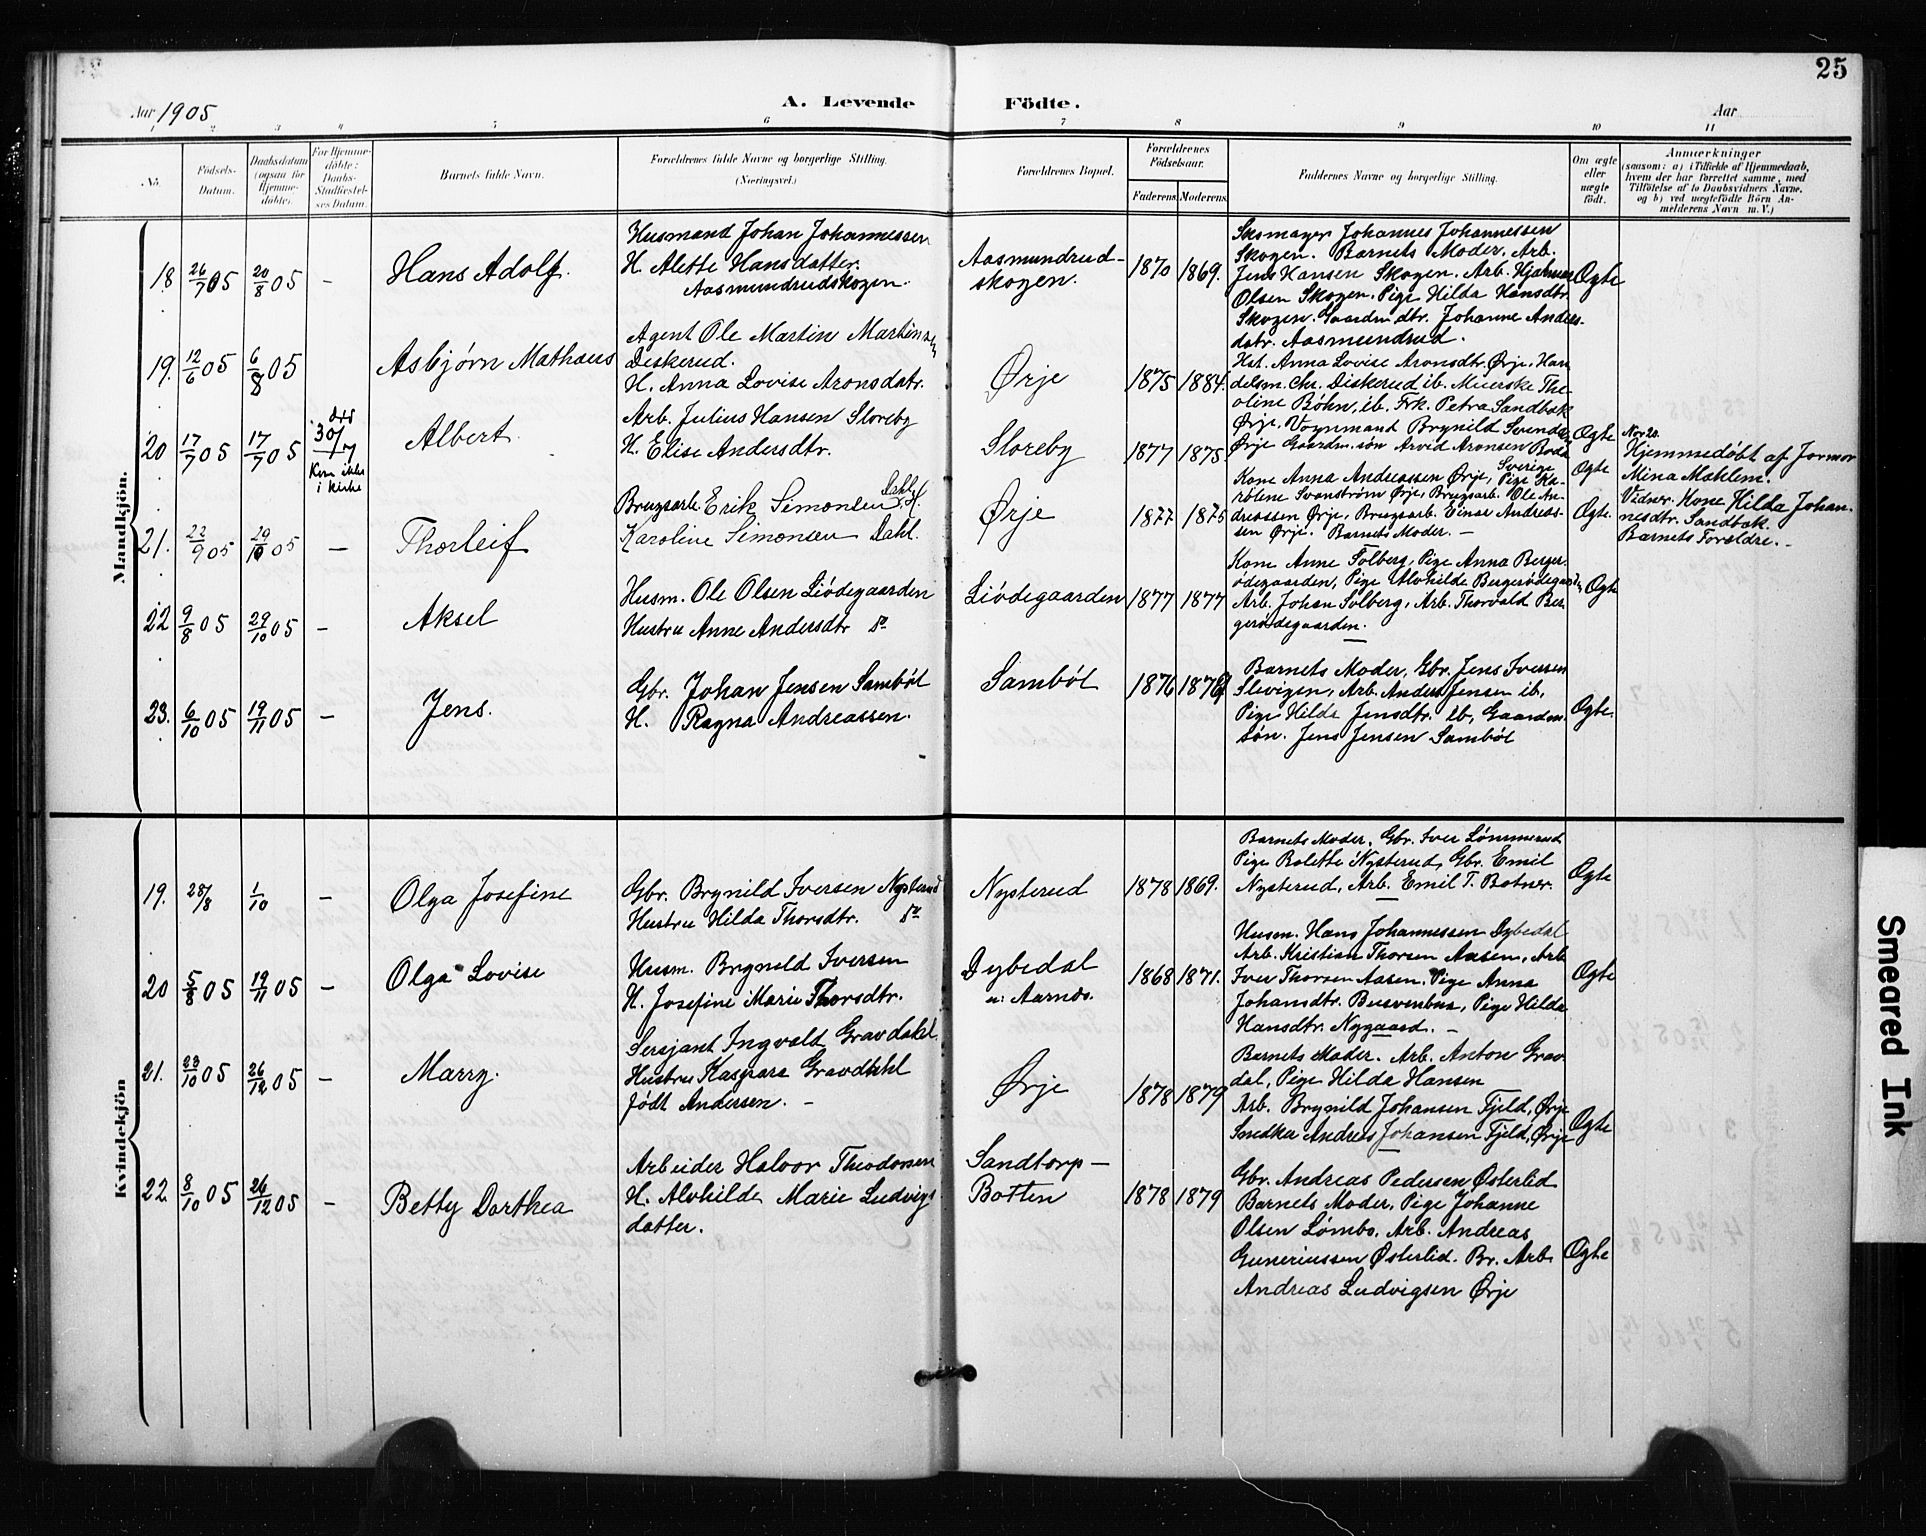 25
Aar 1905
A. Levende
Födte.
Aar
1 2 3 4 5 6 7 8 9 10 11
No.
Födsels-
Datum.
Daabsdatum
(ogsaa for
Hjemme-
döbte).
For Hjemme-
döbte:
Daabs-
Stadfæstel-
ses Datum.
Barnets fulde Navn.
Forældrenes fulde Navne og borgerlige Stilling.
(Næringsvei.)
Forældrenes Bopæl.
Forældrenes
Födselsaar.
Faderens.
Moderens.
Faddernes Navne og borgerlige Stilling.
Om ægte
eller
uægte
födt.
Anmærkninger
(saasom: a) i Tilfælde af Hjemmedaab,
hvem der har forrettet samme, med
Tilföielse af to Daabsvidners Navne,
og b) ved uægtefödte Börn An-
melderens Navn m. V.)
Mandkjön.
18 26/7 05 20/8 05 –
Hans Adolf.
Husmand Johan Johannessen
H. Alette Hansdatter.
Aasmundrudskogen.
Aasmundrud-
skogen.
1870 1869.
Skomager Johannes Johannessen
Skogen. Barnets Moder. Arb.
Jens Hansen Skogen. Arb. Hjalmar
Olsen Skogen. Pige Hilda Hansdtr.
Skogen. Gaardm. dtr. Johanne Anders-
datr. Aasmundrud.
Ægte
19. 12/6 05 6/8 05
Asbjørn Mathæus
Agent Ole Martin Martinsen
Diskerud.
H. Anna Lovise Aronsdatr.
Ørje
1875 1884.
Hst. Anna Lovise Aronsdtr. Ørje. Han
delsm. Chr. Diskerud ib. Meierske The-
oline Bøhn, ib. Frk. Petra Sandbæk
Ørje. Vognmand Brynild Svends
Ørje Gaardm. søn Arvid Aronsen Bøda
Sverige
Ægte
20 17/7 05 17/7 05
30/7
Kom ikke
i kirke
Albert.
Arb. Julius Hansen Storeby
H. Elise Andersdtr.
Storeby
1877 1875.
Ægte
No 20.
Hjemmedøbt af Jormor
Mina Mohlem.
Vidner. Kone Hilda Johan-
nesdtr. Sandbæk.
Barnets Forældre. –
21. 22/9 05 29/10 05 –
Thorleif
Brugsarb. Erik Simonsen Dahl H.
Karoline Simonsen Dahl.
Ørje
1877 1875
Kone Anna Andreassen Ørje, Pige Ka-
roline Svanstrøm Ørje, Brugsarb. Ole An-
dreassen Ørje, Brugsarb. Einar Andreas-
sen Ørje. Barnets Moder. –
Ægte.
22 9/8 05 29/10 05 –
Aksel
Husm. Ole Olsen Liødegaarden
Hustru Anne Andersdtr do
Liødegaarden
1877 1877
Kone Anne Solberg, Pige Anna Berger-
ødegaarden, Pige Alvhilde Bergerødegaard.
Arb. Johan Solberg, Arb. Thorvald Ber-
gerødegaarden.
Ægte
23. 6/10 05 19/11 05 –
Jens.
Gbr. Johan Jensen Sambøl
H. Ragna Andreassen.
Sambøl
1876
Barnets Moder, Gbr. Jens Iversen
Slevigen, Arb. Anders Jensen ib,
Pige Hilda Jensdtr. ib, Gaardm.
søn. Jens Jensen Sambøl
Ægte.
Kvindekjön
19. 28/8 1/10 –
Olga Josefine
Gbr. Brynild Iversen Nysterud
Hustru Hilda Thorsdtr. do
Nysterud
1878 1869.
Barnets Moder, Gbr. Iver Lømmerud
Pige Bolette Nysterud, Gbr. Emil
Nysterud, Arb. Emil T. Botner.
Ægte
20 5/8 05 19/11 05 –
Olga Lovise
Husm. Brynild Iversen
H. Josefine Marie Thorsdtr.
Dybedal
u. Aarnæs.
1868 1871.
Husm. Hans Johannessen Dybedal
Arb. Kristian Thorsen Aasen, Arb.
Iver Thorsen Aasen. Pige Anna
Johansdtr. Pige Hilda
Hansdtr. Nygaard. –
Ægte
21. 23/10 05 26/12 05 –
Marry.
Sersjant Ingvald Gravdahl.
Hustru Kaspara Gravdahl
født Andersen. –
Ørje
1878 1879
Barnets Moder. Arb. Anton Grav-
dal, Pige Hilda Hansen
Arb. Brynild Johansen Fjeld, Ørje
Snedker Andreas Johansen Fjeld, Ørje
Ægte
22. 8/10 05 26/12 05 –
Betty Dorthea
Arbeider Halvor Theodorsen
H. Alvhilde Marie Ludvigs
datter.
Sandtorp –
Botten
1878 1879
Gbr. Andreas Pedersen Østerlid
Barnets Moder, Pige Johanne
Olsen Lømbo, Arb. Andreas
Gunerinssen Østerlid. Br. Arb.
Andreas Ludvigsen Ørje
Ægte
Smeared Ink